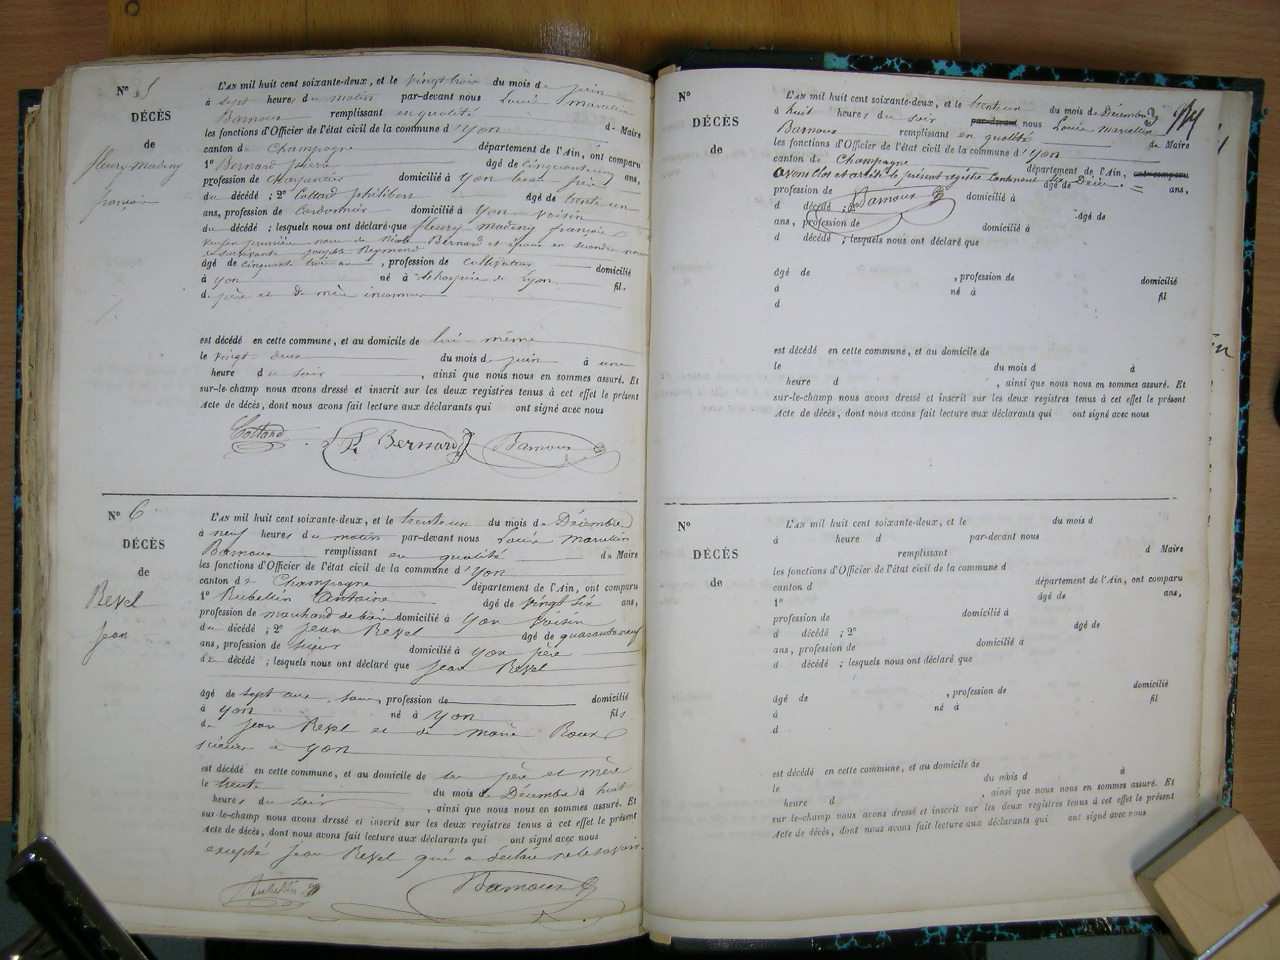 N° 5
DÉCÈS
de
fleury Madeny
françois
L'AN mil huit cent soixante-deux, et le vingt trois du mois de juin
à sept heures du matin par-devant nous Louis Marcelin
Bamoux remplissant en qualité de Maire
les fonctions d'Officier de l'état civil de la commune d'yon
canton de Champagne département de l'Ain, ont comparu
1° Bernard pierre âgé de cinquante ans,
profession de domicilié à yon beau frère
du décédé ; 2° Cottard philibert âgé de trente un
ans, profession de Cordonnier domicilié à yon voisin
du décédé ; lesquels nous ont déclaré que fleury Madeny françois
Bernard et époux en secondes noces
joseph Reymond
âgé de cinquante trois ans, profession de cultivateur domicilié
à yon né à de Lyon fil
de père et de mère inconnus
est décédé en cette commune, et au domicile de lui-même
le vingt deux du mois de juin à une
heure du soir, ainsi que nous nous en sommes assuré. Et
sur-le-champ nous avons dressé et inscrit sur les deux registres tenus à cet effet le présent
Acte de décès, dont nous avons fait lecture aux déclarants qui ont signé avec nous
Cottard P. Bernard Bamoux
N° 6
DÉCÈS
de
Revel
Jean
L'AN mil huit cent soixante-deux, et le trente un du mois de Décembre
à neuf heures du matin par-devant nous Louis Marcelin
Bamoux remplissant en qualité du Maire
les fonctions d'Officier de l'état civil de la commune d'yon
canton de Champagne département de l'Ain, ont comparu
1° Rubellin Antoine âgé de vingt six ans,
profession de marchand de bois domicilié à yon voisin
du décédé ; 2° Jean Revel âgé de quarante neuf
ans, profession de scieur domicilié à yon père
du décédé ; lesquels nous ont déclaré que Jean Revel
âgé de sept ans, sans, profession de domicilié
à yon né à yon fils
de Jean Revel et de marie Roux
scieur à yon
est décédé en cette commune, et au domicile de ses père et mère
le trente du mois de Décembre à huit
heures du soir, ainsi que nous nous en sommes assuré. Et
sur-le-champ nous avons dressé et inscrit sur les deux registres tenus à cet effet le présent
Acte de décès, dont nous avons fait lecture aux déclarants qui ont signé avec nous
excepté Jean Revel qui a déclaré ne le savoir.
Rubellin Bamoux
N°
DÉCÈS
de
L'AN mil huit cent soixante-deux, et le trente un du mois de Décembre
à huit heures du soir par-devant nous Louis Marcelin
Bamoux remplissant en qualité de Maire
les fonctions d'Officier de l'état civil de la commune d'yon
canton de Champagne département de l'Ain, ont comparu
avons clos et arrêté le présent registre contenant six Décès. âgé de ans,
profession de domicilié à
Bamoux
d décédé ; 2° âgé de
ans, profession de domicilié à
d décédé ; lesquels nous ont déclaré que
âgé de , profession de domicilié
à né à fil
d
est décédé en cette commune, et au domicile de
le du mois d à
heure d , ainsi que nous nous en sommes assuré. Et
sur-le-champ nous avons dressé et inscrit sur les deux registres tenus à cet effet le présent
Acte de décès, dont nous avons fait lecture aux déclarants qui ont signé avec nous
N°
DÉCÈS
de
L'AN mil huit cent soixante-deux, et le du mois d
à heure d par-devant nous
remplissant d Maire
les fonctions d'Officier de l'état civil de la commune d
canton d département de l'Ain, ont comparu
1° âgé de ans,
profession de domicilié à
d décédé ; 2° âgé de
ans, profession de domicilié à
d décédé ; lesquels nous ont déclaré que
âgé de , profession de domicilié
à né à fil
d
est décédé en cette commune, et au domicile de
le du mois d à
heure d , ainsi que nous nous en sommes assuré. Et
sur-le-champ nous avons dressé et inscrit sur les deux registres tenus à cet effet le présent
Acte de décès, dont nous avons fait lecture aux déclarants qui ont signé avec nous